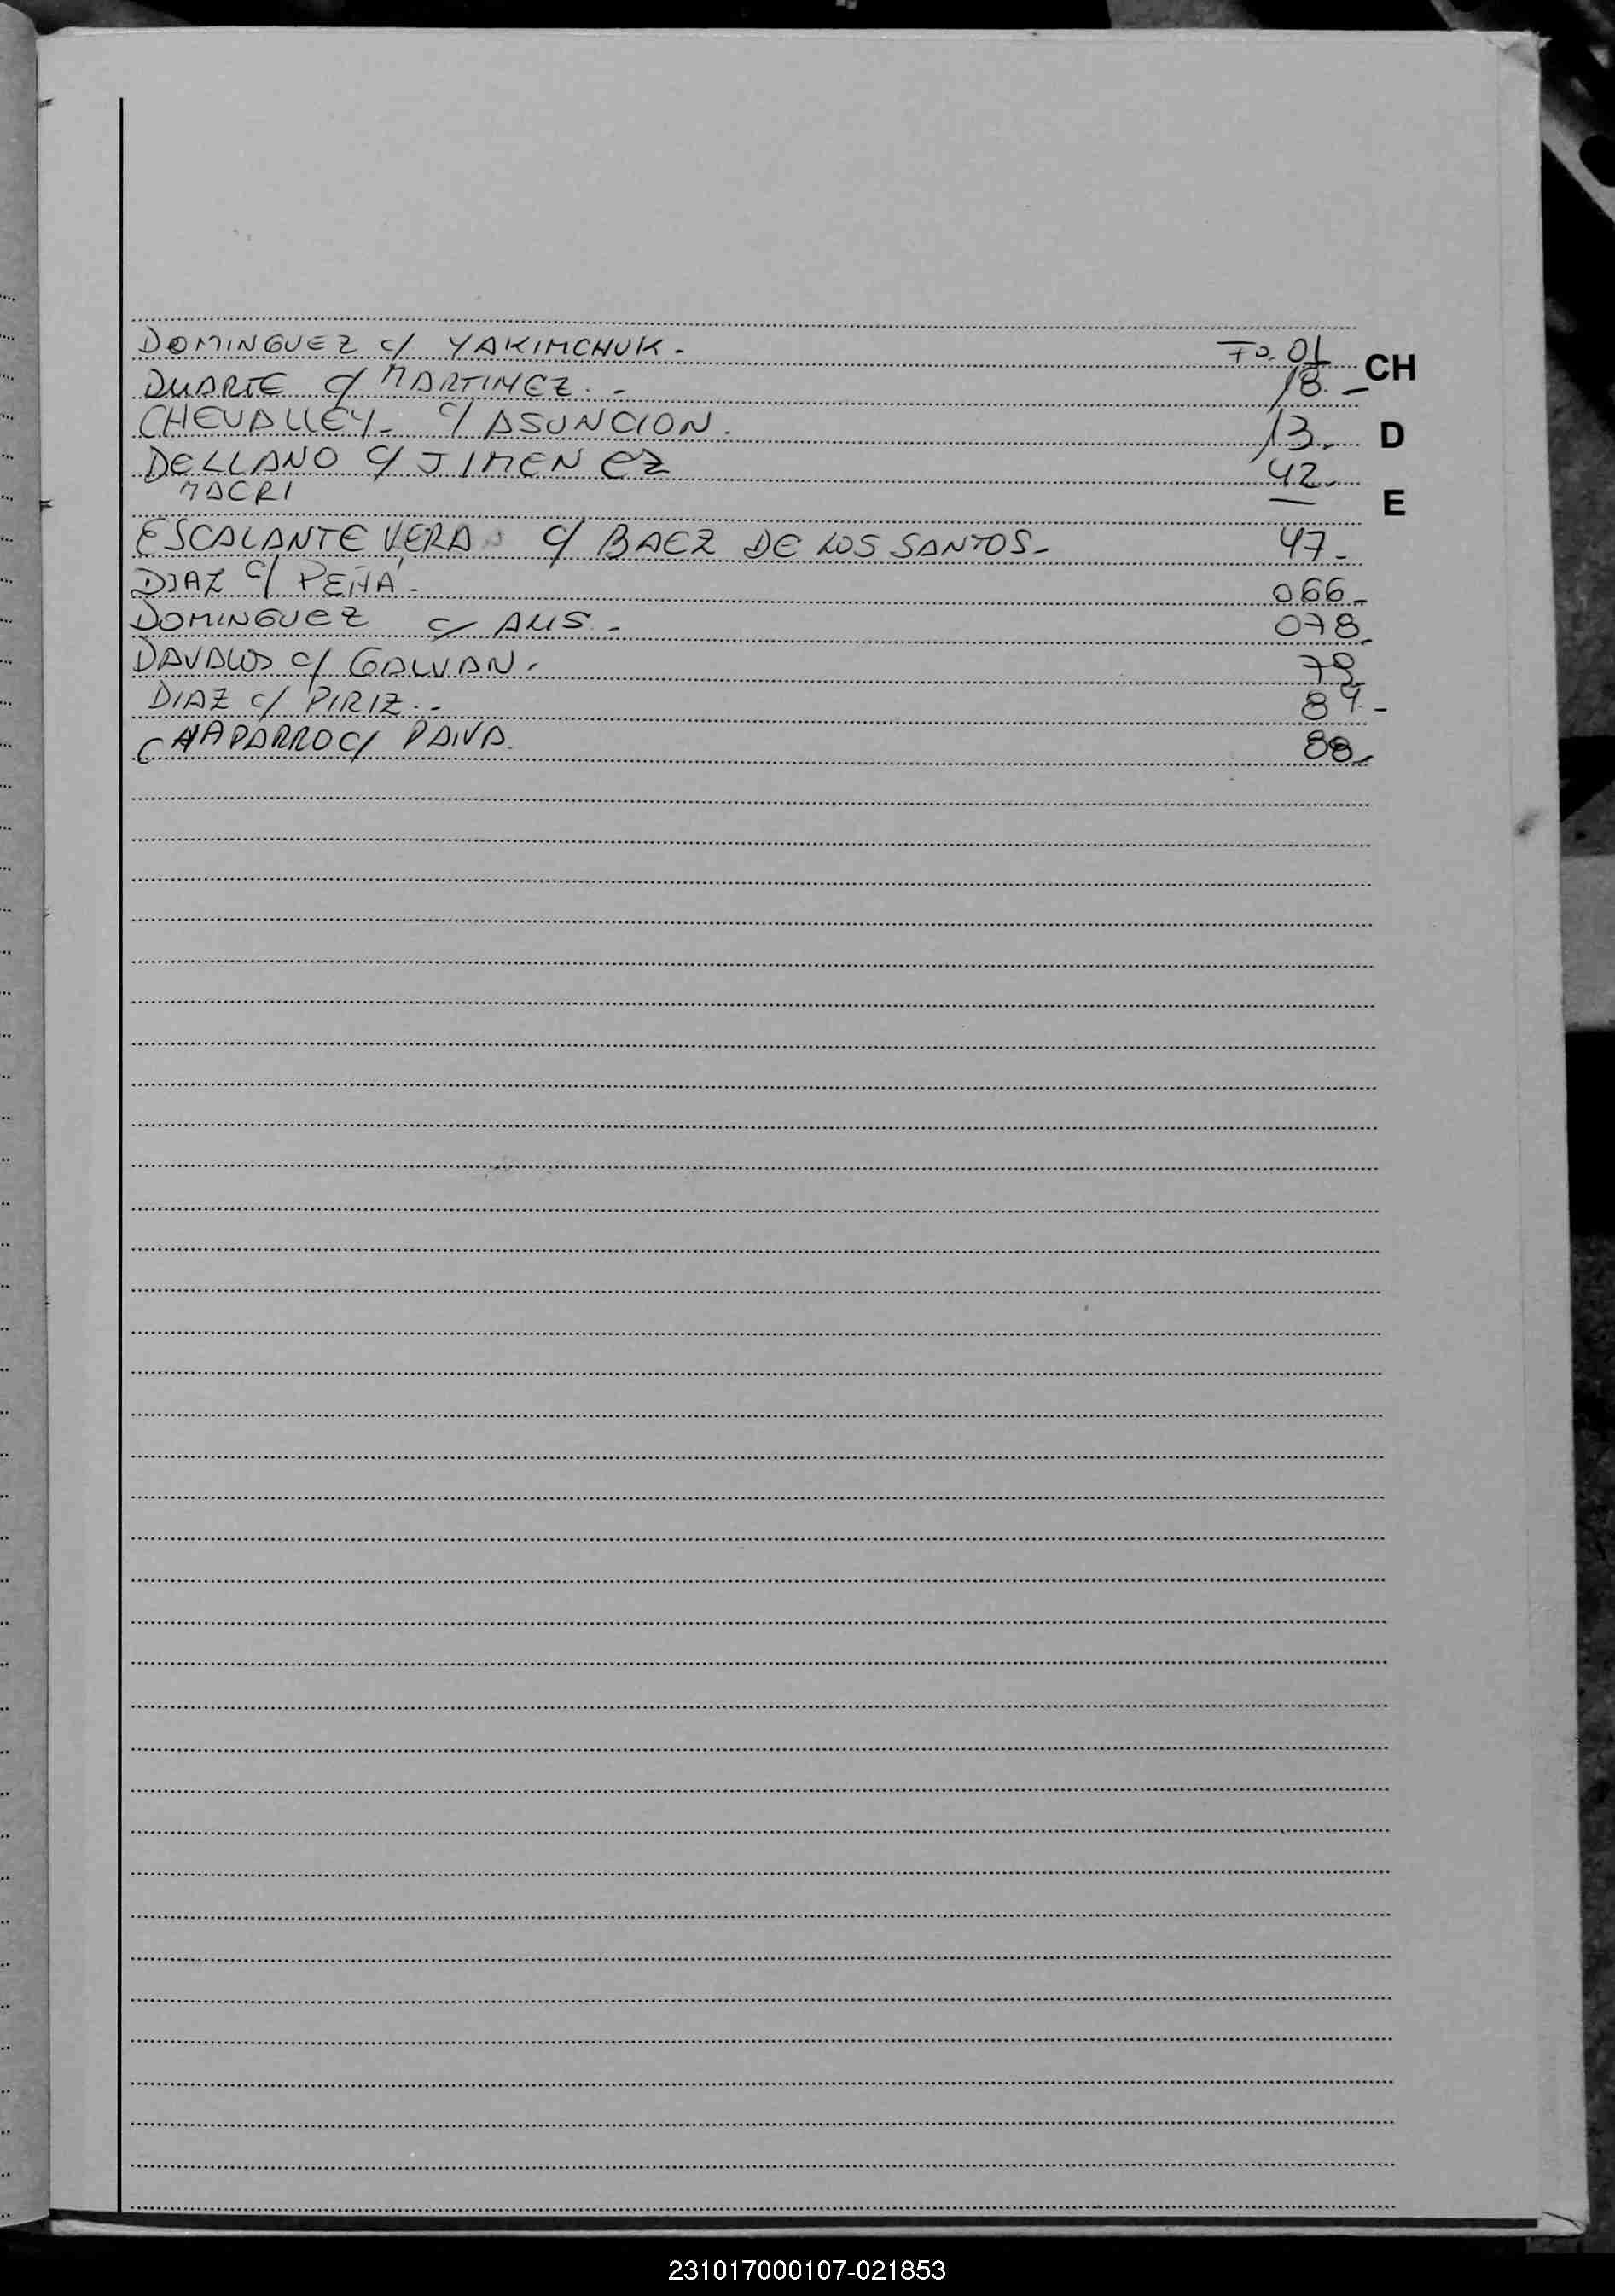 DOMINGUEZ c/ YAKIMCHUK. Fo. 01
CH
DUARTE c/ MARTINEZ. - 18. -
CHEVALLEY - c/ ASUNCION. 13.
D
DELLANO c/ JIMENEZ 42.
MACRI
E
ESCALANTE VERA c/ BAEZ DE LOS SANTOS - 47 -
DIAZ c/ PEÑA - 066 -
DOMINGUEZ c/ ALIS - 078
DAVALOS c/ GALVAN.
DIAZ c/ PIRIZ. - 84 -
CHAPARRO c/ PAIVA. 88
231017000107-021853